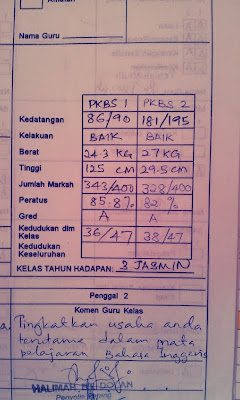 Nama Guru
PKBS 1 PKBS 2
Kedatangan 86/90 181/195
Kelakuan BAIK BAIK
Berat 24.3 KG 27 KG
Tinggi 125 CM 29.5 cm
Jumlah Markah 343/400 328/400
Peratus 85.8% 82 %
Gred A A
Kedudukan dlm Kelas 36/47 38/47
Kedudukan Keseluruhan
KELAS TAHUN HADAPAN: 3 JASMIN
Penggal 2
Komen Guru Kelas
Tingkatkan usaha anda
terutama dalam mata
pelajaran Bahasa Inggeris
HALIMAH